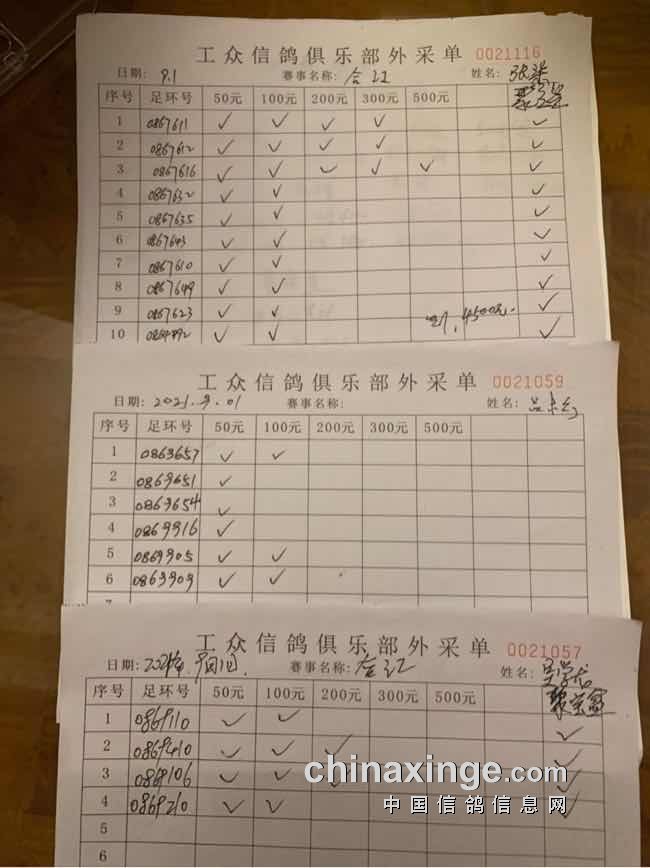 工众信鸽俱乐部外采单 0021116
日期: 9.1 赛事名称: 合江 姓名: 张
序号 足环号 50元 100元 200元 300元 500元
1 0867611 ✓ ✓ ✓ ✓ ✓
2 0867612 ✓ ✓ ✓ ✓ ✓
3 0867616 ✓ ✓ ✓ ✓ ✓ ✓
4 0867632 ✓ ✓ ✓
5 0867635 ✓ ✓ ✓
6 0867643 ✓ ✓ ✓
7 0867610 ✓ ✓ ✓
8 0867649 ✓ ✓ ✓
9 0867623 ✓ ✓ 4500元. ✓
10 ✓ ✓ ✓
工众信鸽俱乐部外采单 0021059
日期: 2021.9.01 赛事名称: 姓名:
序号 足环号 50元 100元 200元 300元 500元
1 0863657 ✓ ✓
2 0869651 ✓
3 0869654 ✓
4 0869916 ✓
5 0869905 ✓ ✓
6 0869909 ✓ ✓
工众信鸽俱乐部外采单 0021057
日期: 2021年 赛事名称: 合江 姓名:
序号 足环号 50元 100元 200元 300元 500元
1 0869110 ✓ ✓ ✓
2 ✓ ✓ ✓ ✓
3 0869106 ✓ ✓ ✓ ✓
4 0869210 ✓ ✓ ✓
5
6
chinaxinge.com
中国信鸽信息网